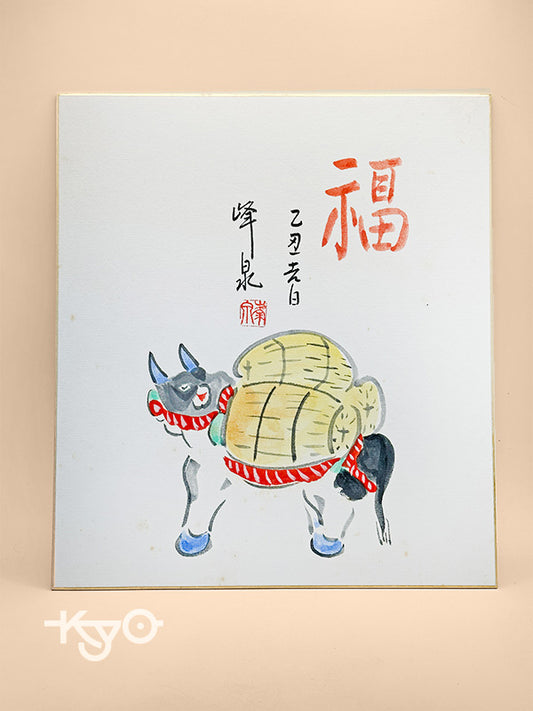 福
乙丑吉日
峰泉
KyO